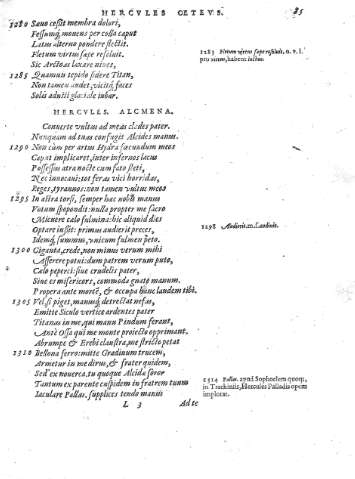 HERCVLES OETEVS. 85
1280 Sano cessit membra dolori,
Fessumq́, mouens per colla caput
Latus alterno pondere flectit.
Fletum virtus sæpe resoluit.
Sic Arctoas laxare niues,
1285 Quamuis tepido sidere Titan,
Non tamen audet, vicitq́ faces
Solis adulti glaciale iubar.
1283 Fletum virtus sæpe resoluit,
pro virtus, habent
HERCVLES. ALCMENA.
Conuerte vultus ad meas clades pater.
Nunquam ad tuas confugit Alcides manus.
1290 Non cùm per artus Hydra fœcundum meos
Caput implicaret, inter infernos lacus
Possessus atra nocte cum fato steti,
Nec inuocaui: tot feras vici horridas,
Reges, tyrannos: non tamen vultus meos
1295 In astra torsi, semper hæc nobis manus
Votum spopondit: nulla propter me sacro
Micuere cælo fulmina: hic aliquid dies
Optare iussit: primus audierit preces,
Idemq́, summus, vnicum fulmen peto.
1298 Audierit
1300 Giganta, crede, non minus verum mihi
Asserere potui: dum patrem verum puto,
Cælo peperci: siue crudelis pater,
Siue es misericors, commoda gnato manum.
Propera ante mortē, & occupa hanc laudem tibi.
1305 Vel si piget, manusq́ detrectat nefas,
Emitte Siculo vertice ardentes pater
Titanas in me, qui manu Pindum ferant,
Aut Ossa qui me monte proiecto opprimant.
Abrumpe & Erebi claustra, me stricto petat
1310 Bellona ferro: mitte Gradiuum trucem,
Armetur in me dirus, & frater quidem,
Sed ex nouerca. tu quoque Alcidæ soror
Tantum ex parente cuspidem in fratrem tuum
Iaculare Pallas. supplices tendo manus
1314 Pallas. apud Sophoclem quoq;
in Trachiniis, Hercules Palladis opem
implorat.
L 3 Ad te